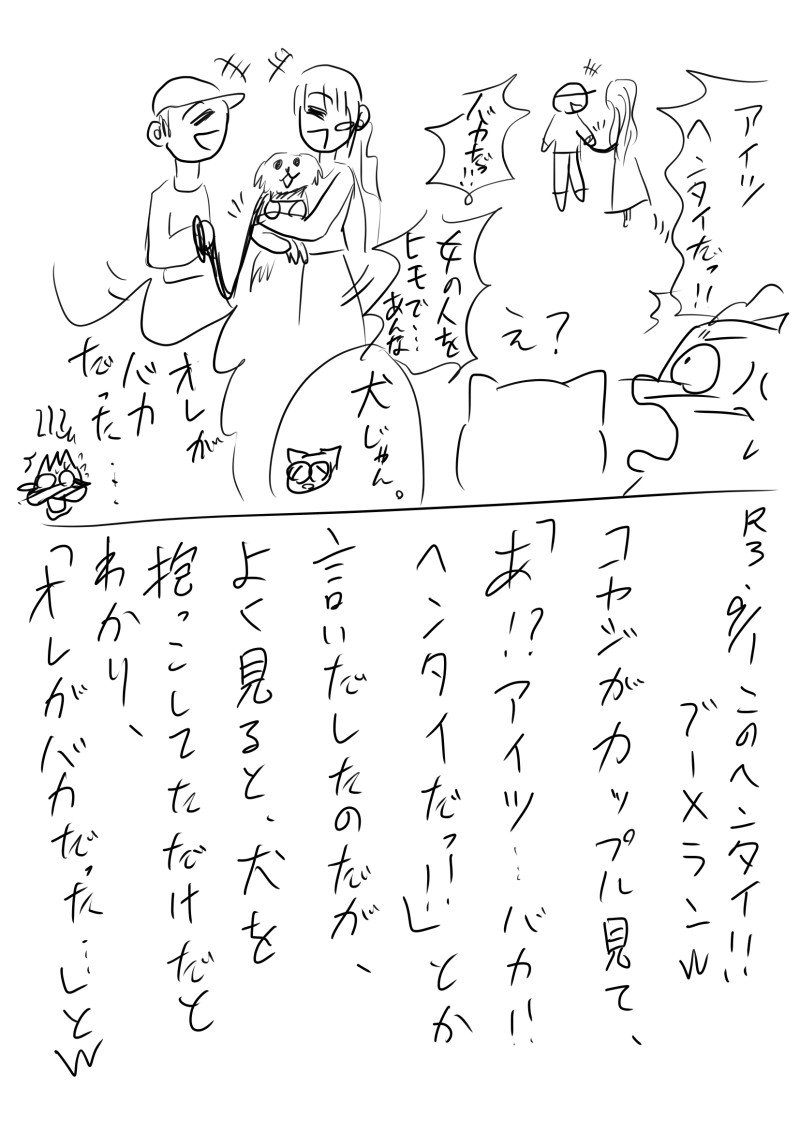 アイツ
ヘンタイだっ!!
バカだ!!
女の人を
ヒモで…
あんな
え?
犬じゃん。
オレが
バカ
だった……
R3.9/1 このヘンタイ!!
ブーメランw
コヤジがカップル見て、
「あ!?アイツ…バカ!!
ヘンタイだっ!!」とか
言いだしたのだが、
よく見ると、犬を
抱っこしてただけだと
わかり、
「オレがバカだった…」とw